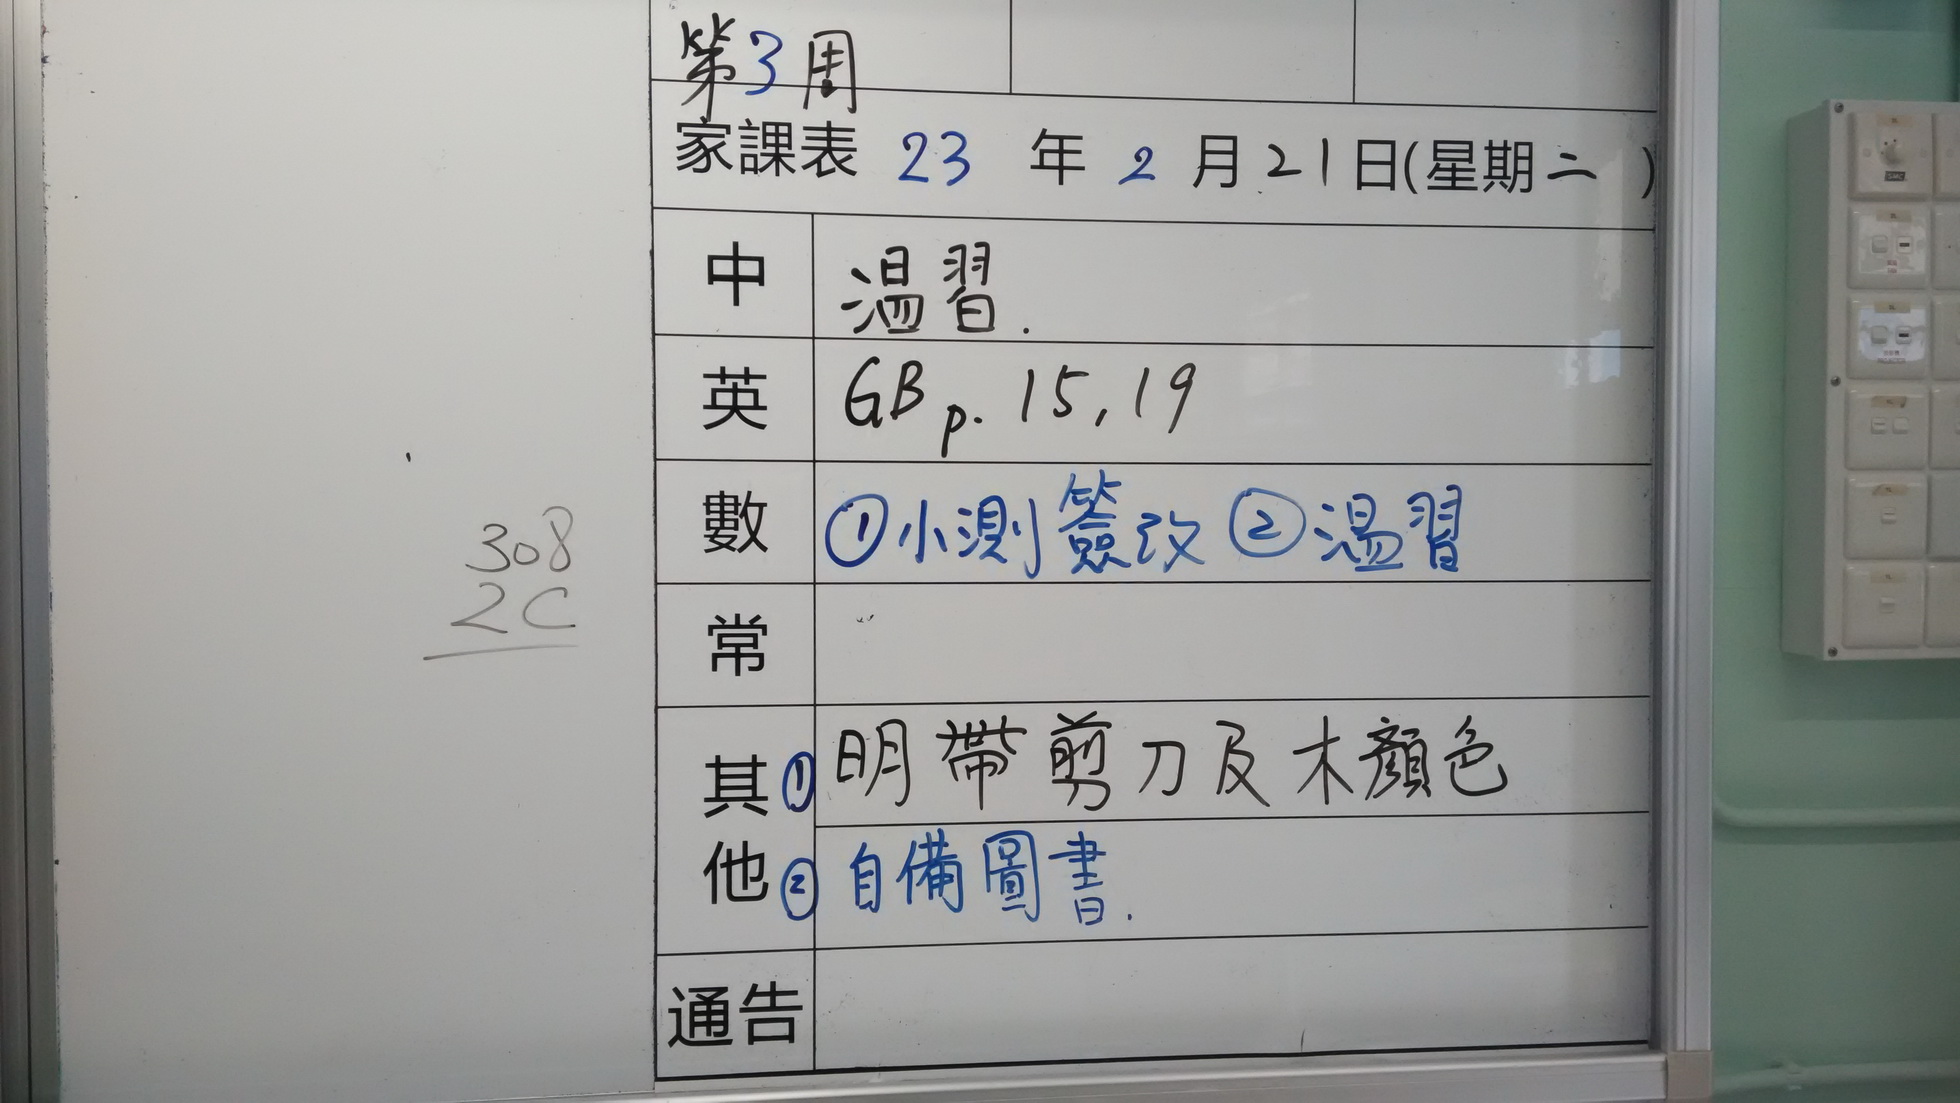 第3周
家課表 23 年 2 月 21 日(星期二 )
中 温習.
英 GB p. 15, 19
數 ①小測簽改 ②温習
308
2C
常
其他 ① 明帶剪刀及木顏色
② 自備圖書.
通告